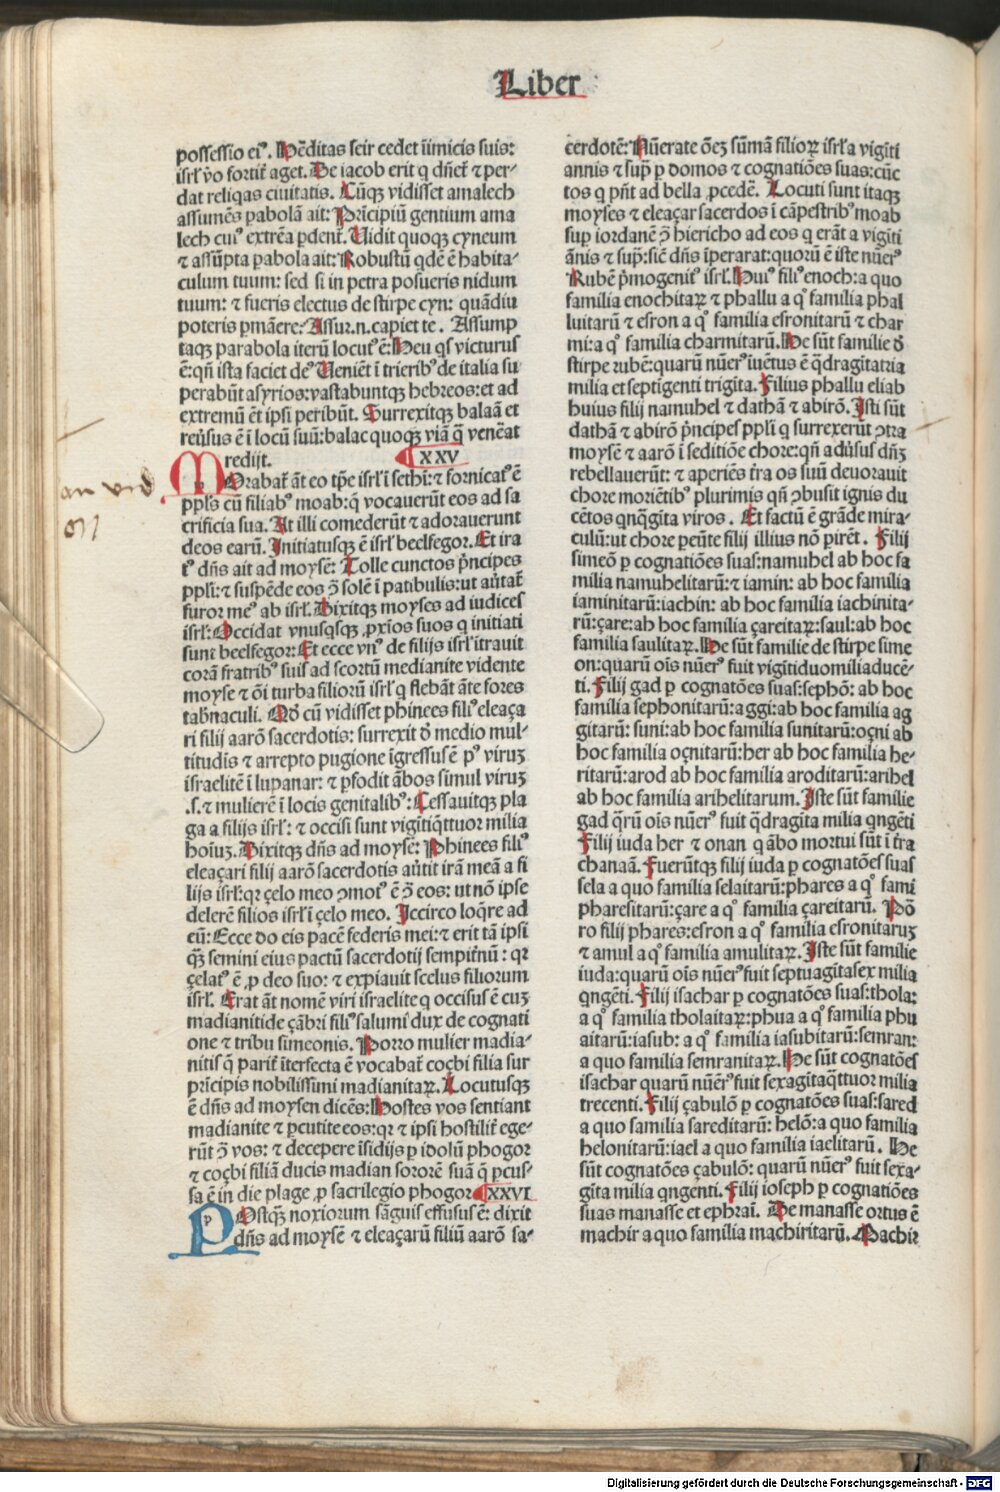 Liber
possessio ei⁹. Hẽditas seir cedet ĩimicis suis:
isrl̕ v̕o fortit̕ aget. De iacob erit q dñet̕ ⁊ per-
dat reliqas ciuitatis. Cũqꝫ vidisset amalech
assumẽs pabolã ait: Pr̃icipiũ gentium ama
lech cui⁹ extrẽa ꝑdent̕. Uidit quoqꝫ cyneum
⁊ assũpta ꝑabola ait: Robustũ qdẽ ẽ habita-
culum tuum: sed si in petra posueris nidum
tuum: ⁊ fueris electus de stirpe cyn: quãdiu
poteris ꝑmãere: Assur.n.capiet te. Assump
taqꝫ parabola iterũ locut⁹ ẽ: Heu qs victurus
ẽ: qñ ista faciet de⁹ Ueniẽt ĩ trierib⁹ de italia su
perabũt asyrios: vastabuntqꝫ hebreos: et ad
extremũ ẽt ipsi peribũt. Surrexitqꝫ balaã et
reũsus ẽ ĩ locũ suũ: balac quoqꝫ viã q̃ venẽat
redijt. XXV
MOrabat̕ ãt eo tp̃e isrl̕ ĩ sethĩ: ⁊ fornicat⁹ ẽ
ppl̕s cũ filiab⁹ moab: q̃ vocauerũt eos ad sa
crificia sua. At illi comederũt ⁊ adorauerunt
deos earũ. Initiatusqꝫ ẽ isrl̕ beelfegor. Et ira
t⁹ dñs ait ad moysẽ: Tolle cunctos p̕ncipes
ppl̕i: ⁊ suspẽde eos ↄ̃ solẽ ĩ patibulis: ut aũtat̕
furor me⁹ ab isrl̕. Dixitqꝫ moyses ad iudices
isrl̕: Occidat vnusqsqꝫ ꝓxĩos suos q initiati
sunt beelfegor: Et ecce vn⁹ de filijs isrl̕ ĩtrauit
corã fratrib⁹ suis ad scortũ medianite vidente
moyse ⁊ õi turba filiorũ isrl̕ q flebãt ãte fores
tab̕naculi. Qð cũ vidisset phinees fili⁹ eleaça
ri filij aarõ sacerdotis: surrexit ð medio mul-
titudĩs ⁊ arrepto pugione ĩgressus ẽ p⁹ viruꝫ
israelitẽ ĩ lupanar: ⁊ ꝑfodit ãbos simul viruꝫ
.s. ⁊ mulierẽ ĩ locis genitalib⁹: Cessauitqꝫ pla
ga a filijs isrl̕: ⁊ occisi sunt vigĩtiq̃ttuor milia
hoĩuꝫ. Dixitqꝫ dñs ad moysẽ: Phinees fili⁹
eleaçari filij aarõ sacerdotis aũtit irã meã a fi
lijs isrl̕: qꝛ çelo meo ↄmot⁹ ẽ ↄ̃ eos: ut nõ ipse
delerẽ filios isrl̕ ĩ çelo meo. Iccirco loq̃re ad
eũ: Ecce do eis pacẽ federis mei: ⁊ erit tã ipsi
q̃ꝫ semini eius pactũ sacerdotij sempit̕nũ: qꝛ
çelat⁹ ẽ ꝓ deo suo: ⁊ expiauit scelus filiorum
isrl̕. Erat ãt nomẽ viri israelite q occisus ẽ cuꝫ
madianitide çãbri fili⁹ salumi dux de cognati
one ⁊ tribu simeonis. Porro mulier madia-
nitis q̃ parit̕ ĩterfecta ẽ vocabat̕ coçbi filia sur
pr̃icipis nobilissimi madianitaꝝ. Locutusqꝫ
ẽ dñs ad moysen dicẽs: Hostes vos sentiant
madianite ⁊ ꝑcutite eos: qꝛ ⁊ ipsi hostilit̕ ege-
rũt ↄ̃ vos: ⁊ decepere ĩsidijs ꝑ idolũ phogor
⁊ coçbi filiã ducis madian sororẽ suã q̃ ꝑcus-
sa ẽ in die plage ꝓ sacrilegio phogor XXVI
POstq̃ꝫ noxiorum sãguis effusus ẽ: dixit
dñs ad moysẽ ⁊ eleaçarũ filiũ aarõ sa-
cerdotẽ: Nũerate õeꝫ sũmã filioꝝ isrl̕ a vigĩti
annis ⁊ sup̕ ꝑ domos ⁊ cognatiões suas: cũc
tos q pñt ad bella ꝓcedẽ. Locuti sunt itaqꝫ
moyses ⁊ eleaçar sacerdos ĩ cãpestrib⁹ moab
sup̕ iordanẽ ↄ̃ hiericho ad eos q erãt a vigĩti
ãnis ⁊ sup̕: siẽ dñs ĩperarat: quorũ ẽ iste nũer⁹
Rubẽ p̕mogenit⁹ isrl̕. Hui⁹ fili⁹ enoch: a quo
familia enochitaꝝ ⁊ phallu a q⁰ familia phal
luitarũ ⁊ esron a q⁰ familia esronitarũ ⁊ char
mi: a q⁰ familia charmitarũ. He sũt familie ð
stirpe rubẽ: quarũ nũer⁹ ĩuẽtus ẽ q̃dragĩtatria
milia et septigenti trigĩta. Filius phallu eliab
huius filij namuhel ⁊ dathã ⁊ abirõ. Isti sũt
dathã ⁊ abirõ p̕ncipes ppl̕i q surrexerũt ↄtra
moysẽ ⁊ aarõ ĩ seditiõe chore: qñ adũsus dñꝫ
rebellauerũt: ⁊ aperiẽs t̕ra os suũ deuorauit
chore moriẽtib⁹ plurimis qñ ↄbusit ignis du
cẽtos qnq̃gĩta viros. Et factũ ẽ grãde mira-
culũ: ut chore ꝑeũte filij illius nõ pirẽt. Filij
simeõ ꝑ cognatiões suas: namuhel ab hoc fa
milia namuhelitarũ: ⁊ iamin: ab hoc familia
iaminitarũ: iachin: ab hoc familia iachinita-
rũ: çare: ab hoc familia çareitaꝝ: saul: ab hoc
familia saulitaꝝ. He sũt familie de stirpe sime
on: quarũ oĩs nũer⁹ fuit vigĩtiduomiliaducẽ-
ti. Filij gad ꝑ cognatões suas: sephõ: ab hoc
familia sephonitarũ: aggi: ab hoc familia ag
gitarũ: suni: ab hoc familia sunitarũ: oçni ab
hoc familia oçnitarũ: her ab hoc familia he-
ritarũ: arod ab hoc familia aroditarũ: arihel
ab hoc familia arihelitarum. Iste sũt familie
gad q̃rũ oĩs nũer⁹ fuit q̃dragĩta milia qngẽti
Filij iuda her ⁊ onan q ãbo mortui sũt ĩ t̕ra
chanaã. Fuerũtqꝫ filij iuda ꝑ cognatões suas
sela a quo familia selaitarũ: phares a q⁰ fami
pharesitarũ: çare a q⁰ familia çareitarũ. Põ
ro filij phares: esron a q⁰ familia esronitaruꝫ
⁊ amul a q⁰ familia amulitaꝝ. Iste sũt familie
iuda: quarũ oĩs nũer⁹ fuit septuagĩtasex milia
qngẽti. Filij isachar ꝑ cognatões suas: thola:
a q⁰ familia tholaitaꝝ: phua a q⁰ familia phu
aitarũ: iasub: a q⁰ familia iasubitarũ: semran:
a quo familia semranitaꝝ. He sũt cognatões
isachar quarũ nũer⁹ fuit sexagĩtaq̃ttuor milia
trecenti. Filij çabulõ ꝑ cognatões suas: sared
a quo familia sareditarũ: helõ: a quo familia
helonitarũ: iael a quo familia iaelitarũ. He
sũt cognatões çabulõ: quarũ nũer⁹ fuit sexa-
gĩta milia qngenti. Filij ioseph ꝑ cognatiões
suas manasse et ephraĩ. De manasse ortus ẽ
machir a quo familia machiritarũ. Machir
Digitalisierung gefördert durch die Deutsche Forschungsgemeinschaft - DFG